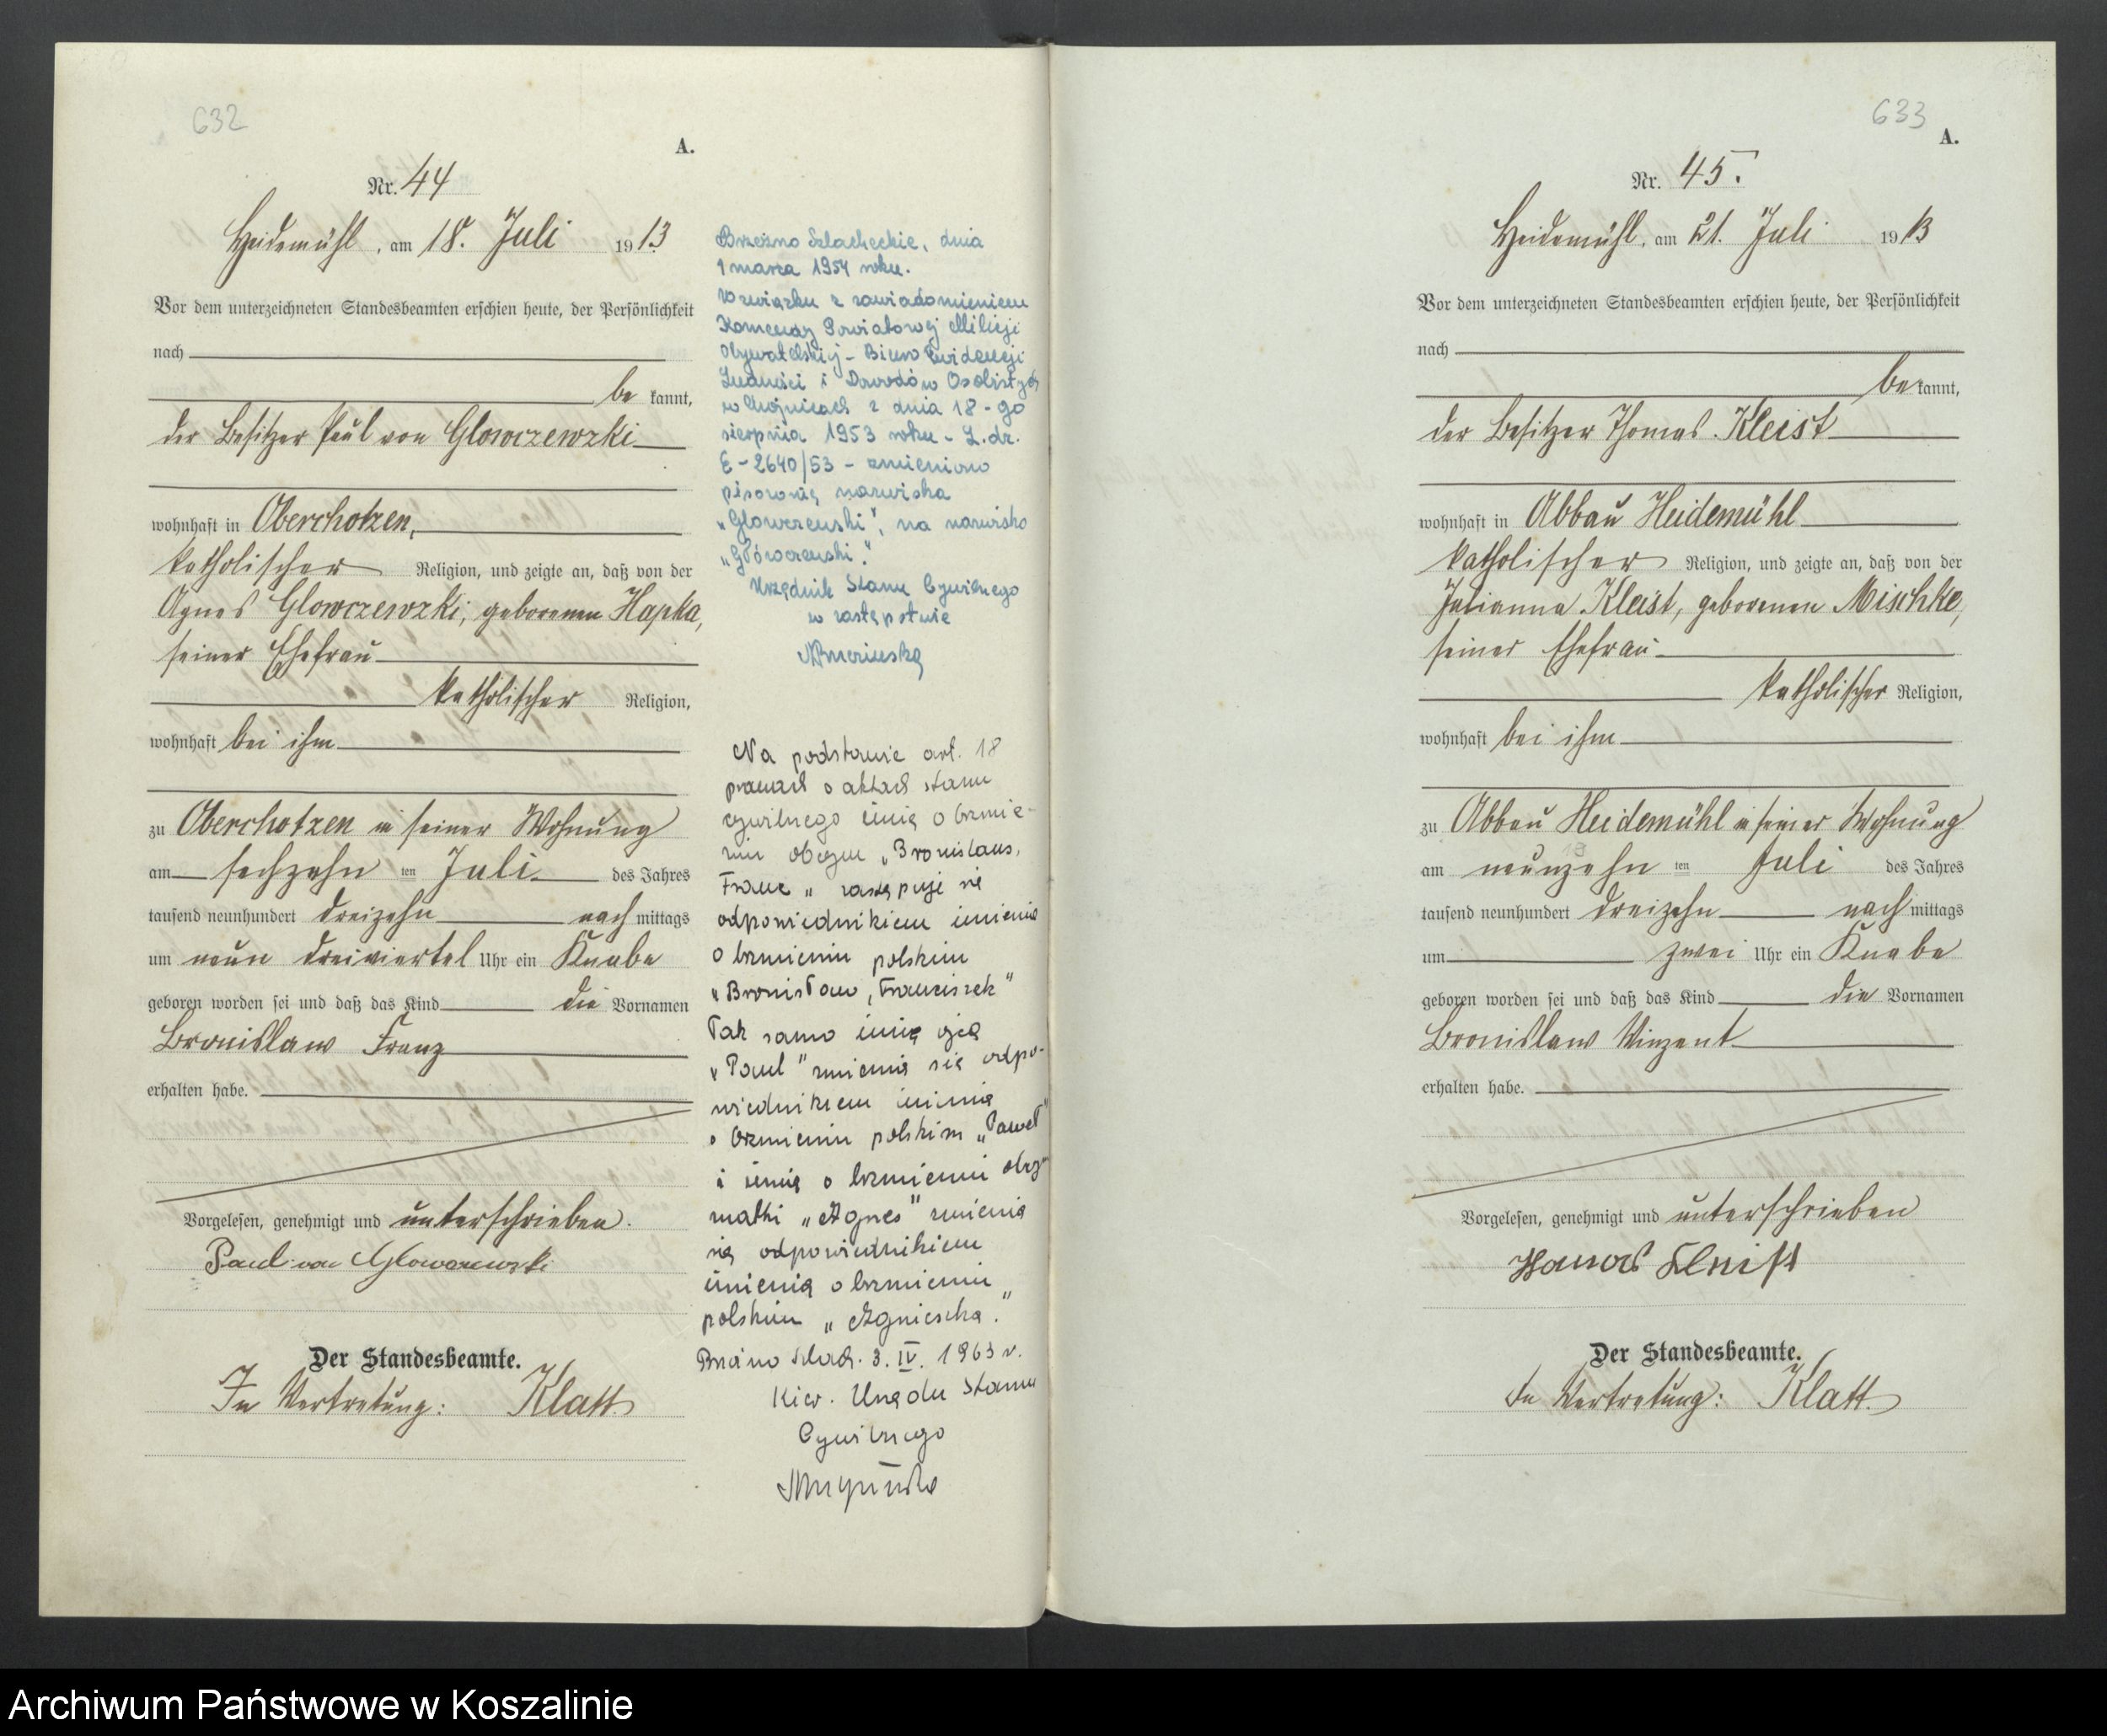 632
A.
Nr. 44
Heidemühl, am 18. Juli 1913
Vor dem unterzeichneten Standesbeamten erschien heute, der Persönlichkeit
nach
be kannt,
der Besitzer Paul von Glowczewzki
wohnhaft in Oberchotzen,
katholischer Religion, und zeigte an, daß von der
Agnes Glowczewzki, geborenen Hapka,
seiner Ehefrau
katholischer Religion,
wohnhaft bei ihm
zu Oberchotzen in seiner Wohnung
am sechzehn ten Juli des Jahres
tausend neunhundert dreizehn nach mittags
um neun dreiviertel Uhr ein Knabe
geboren worden sei und daß das Kind die Vornamen
Bronislaw Franz
erhalten habe.
Vorgelesen, genehmigt und unterschrieben.
Paul von Glowczewski
Der Standesbeamte.
In Vertretung: Klatt
Brzeźno Szlacheckie, dnia
1 marca 1954 roku.
W związku z zawiadomieniem
Komendy Powiatowej Milicji
Obywatelskiej - Biuro Ewidencji
Ludności i Dowodów Osobistych
w Chojnicach z dnia 18-go
sierpnia 1953 roku - L.dz.
E-2640/53 - zmieniono
pisownię nazwiska
„Glowczewski", na nazwisko
„Główczewski."
Urzędnik Stanu Cywilnego
w zastępstwie
Na podstawie art. 18
prawach o aktach stanu
cywilnego imię o brzmie-
niu obcym „Bronislaus,
Franz" zastępuje się
odpowiednikiem imienia
o brzmieniu polskim
„Bronisław, Franciszek"
Tak samo imię ojca
„Paul" zmienia się odpo-
wiednikiem imienia
o brzmieniu polskim „Paweł"
i imię o brzmieniu obcym
matki „Agnes" zmienia
się odpowiednikiem
imienia o brzmieniu
polskim „Agnieszka."
Brzeźno Szlach. 3. IV. 1963 r.
Kier. Urzędu Stanu
Cywilnego
633
A.
Nr. 45.
Heidemühl, am 21. Juli 1913
Vor dem unterzeichneten Standesbeamten erschien heute, der Persönlichkeit
nach
be kannt,
der Besitzer Thomas Kleist
wohnhaft in Abbau Heidemühl
katholischer Religion, und zeigte an, daß von der
Julianna Kleist, geborenen Mischke,
seiner Ehefrau
katholischer Religion,
wohnhaft bei ihm
zu Abbau Heidemühl in seiner Wohnung
am neunzehn ten Juli des Jahres
19
tausend neunhundert dreizehn nach mittags
um zwei Uhr ein Knabe
geboren worden sei und daß das Kind die Vornamen
Bronislaw Vinzent
erhalten habe.
Vorgelesen, genehmigt und unterschrieben
Kleist
Der Standesbeamte.
In Vertretung: Klatt.
Archiwum Państwowe w Koszalinie